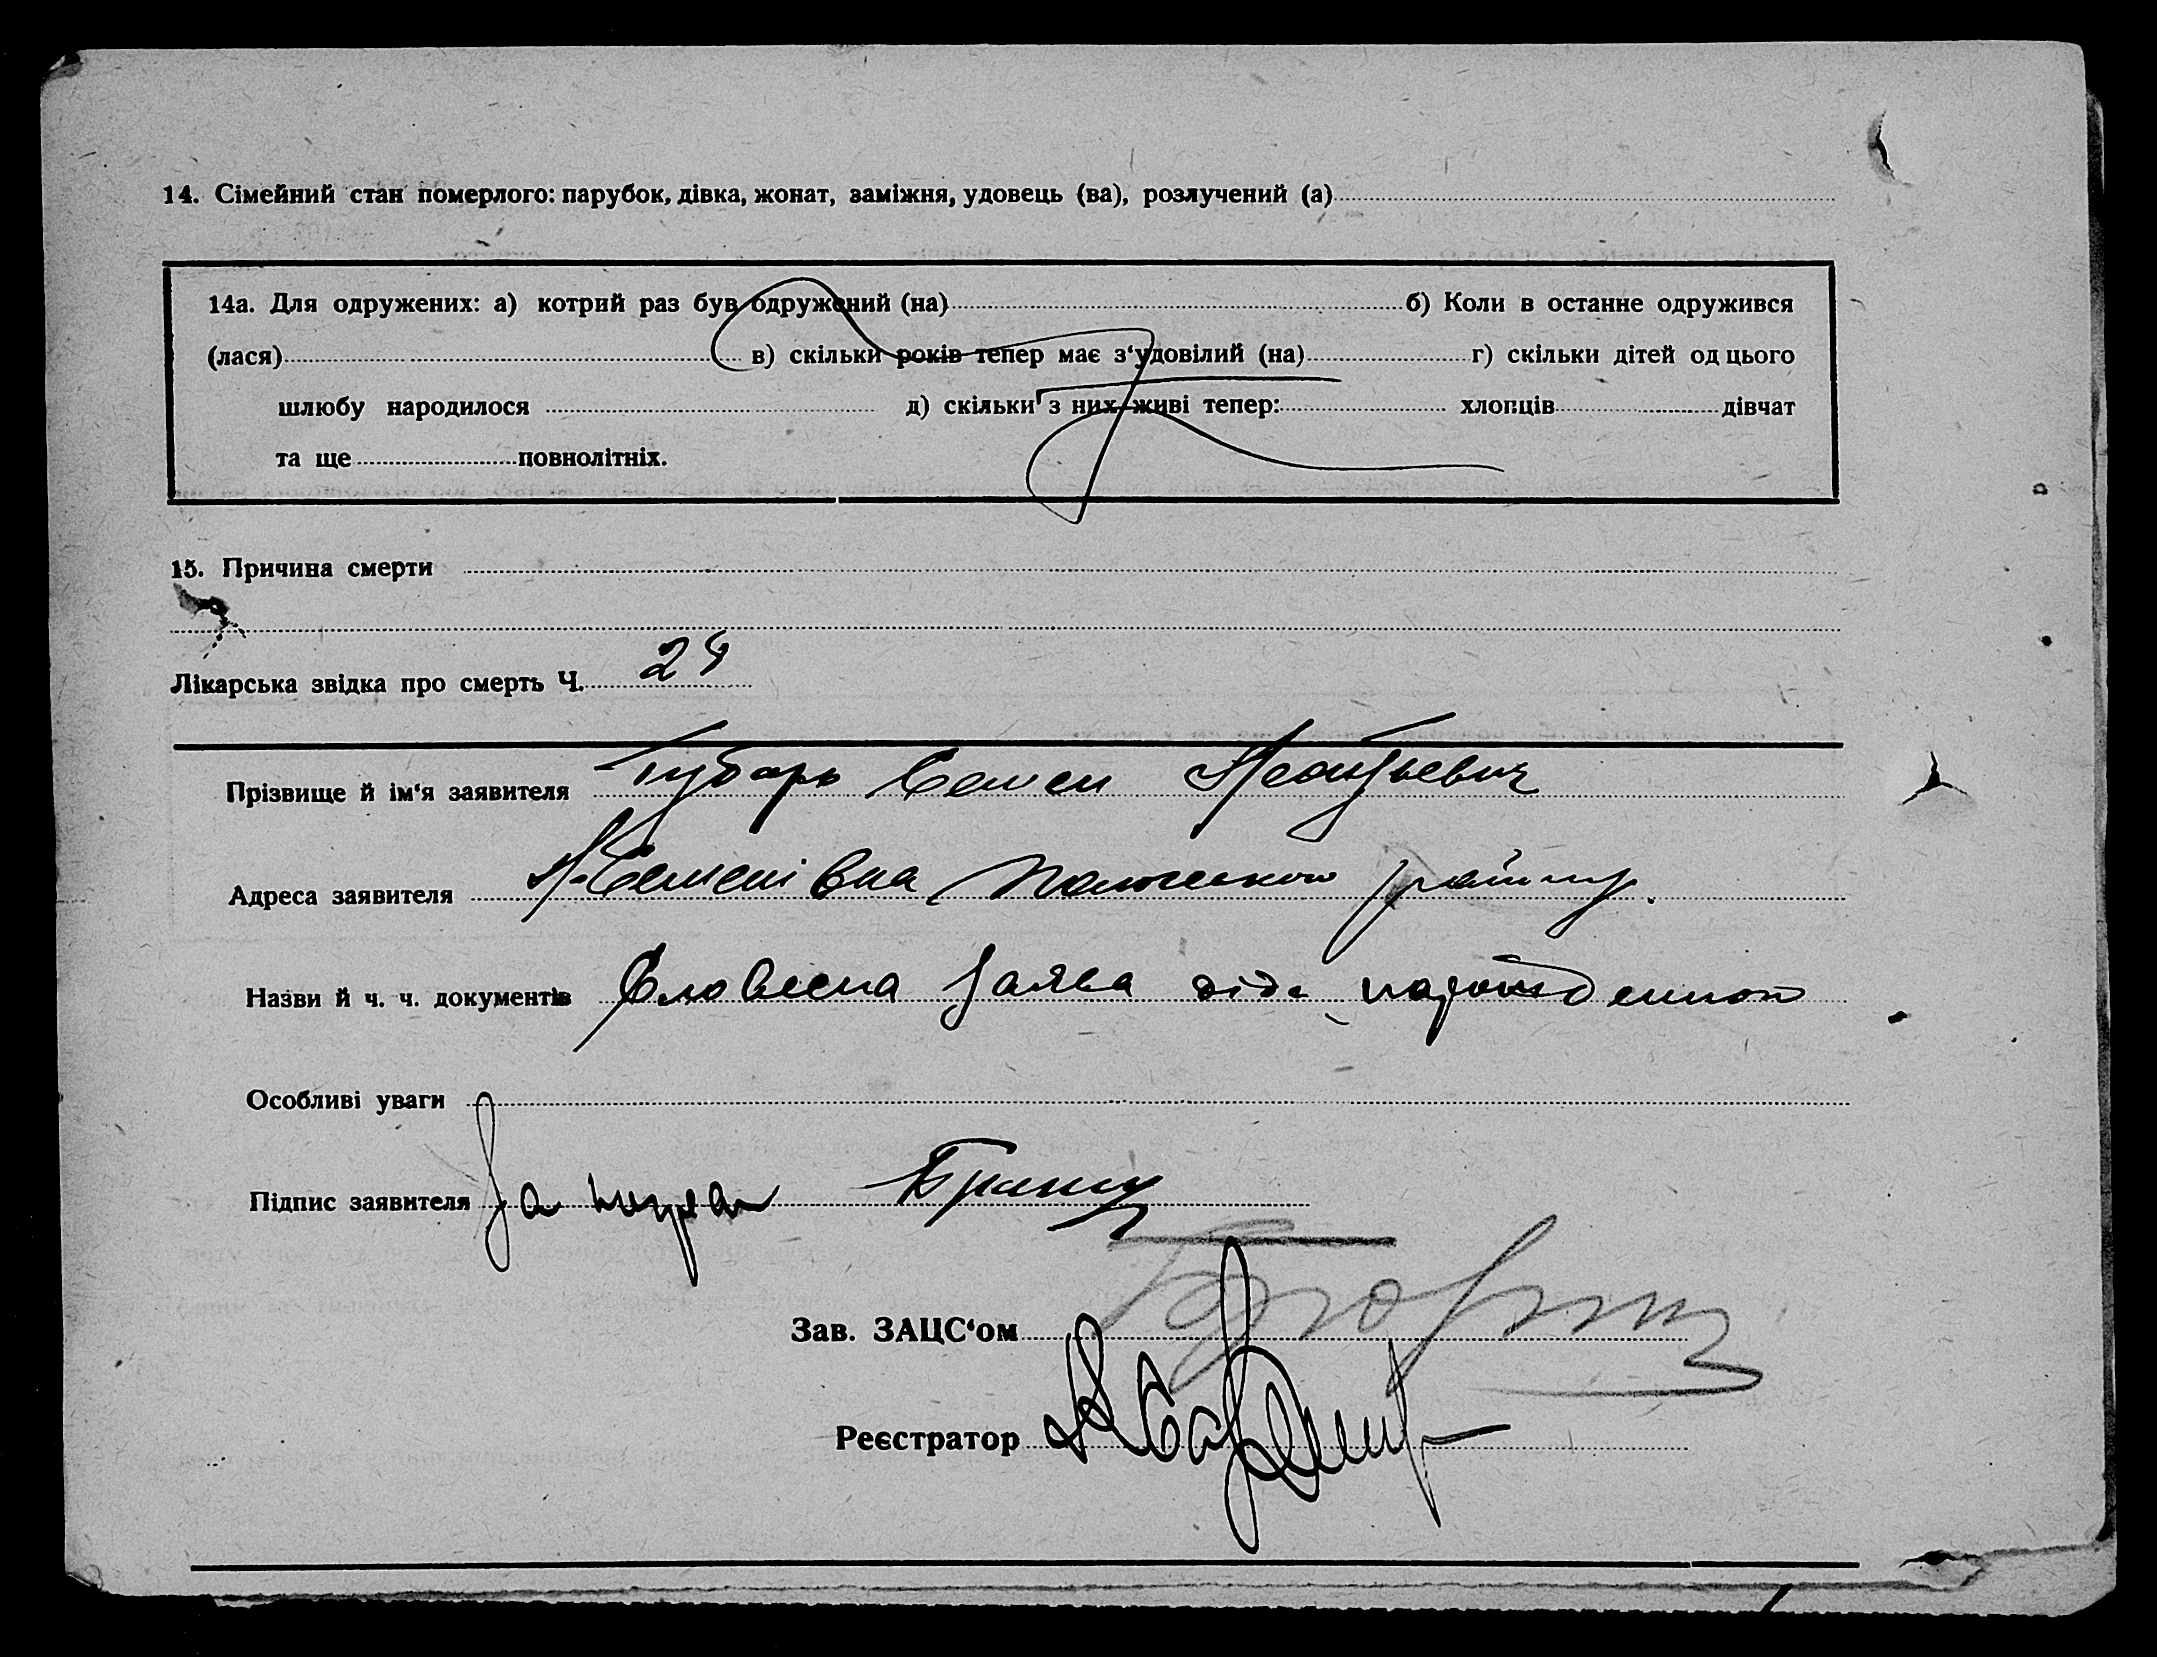 14. Сімейний стан померлого: парубок, дівка, жонат, заміжня, удовець (ва), розлучений (а)
14а. Для одружених: а) котрий раз був одружений (на) б) Коли в останнє одружився
(лася) в) скільки років тепер має з‘удовілий (на) г) скільки дітей од цього
шлюбу народилося д) скільки з них живі тепер: хлопців дівчат
та ще повнолітніх.
15. Причина смерти
Лікарська звідка про смерть Ч. 24
Прізвище й ім‘я заявителя Губарь Семен
Адреса заявителя Семенівка району.
Назви й ч. ч. документів Словесна заява діда
Особливі уваги
Підпис заявителя За
Зав. ЗАЦС‘ом
Реєстратор